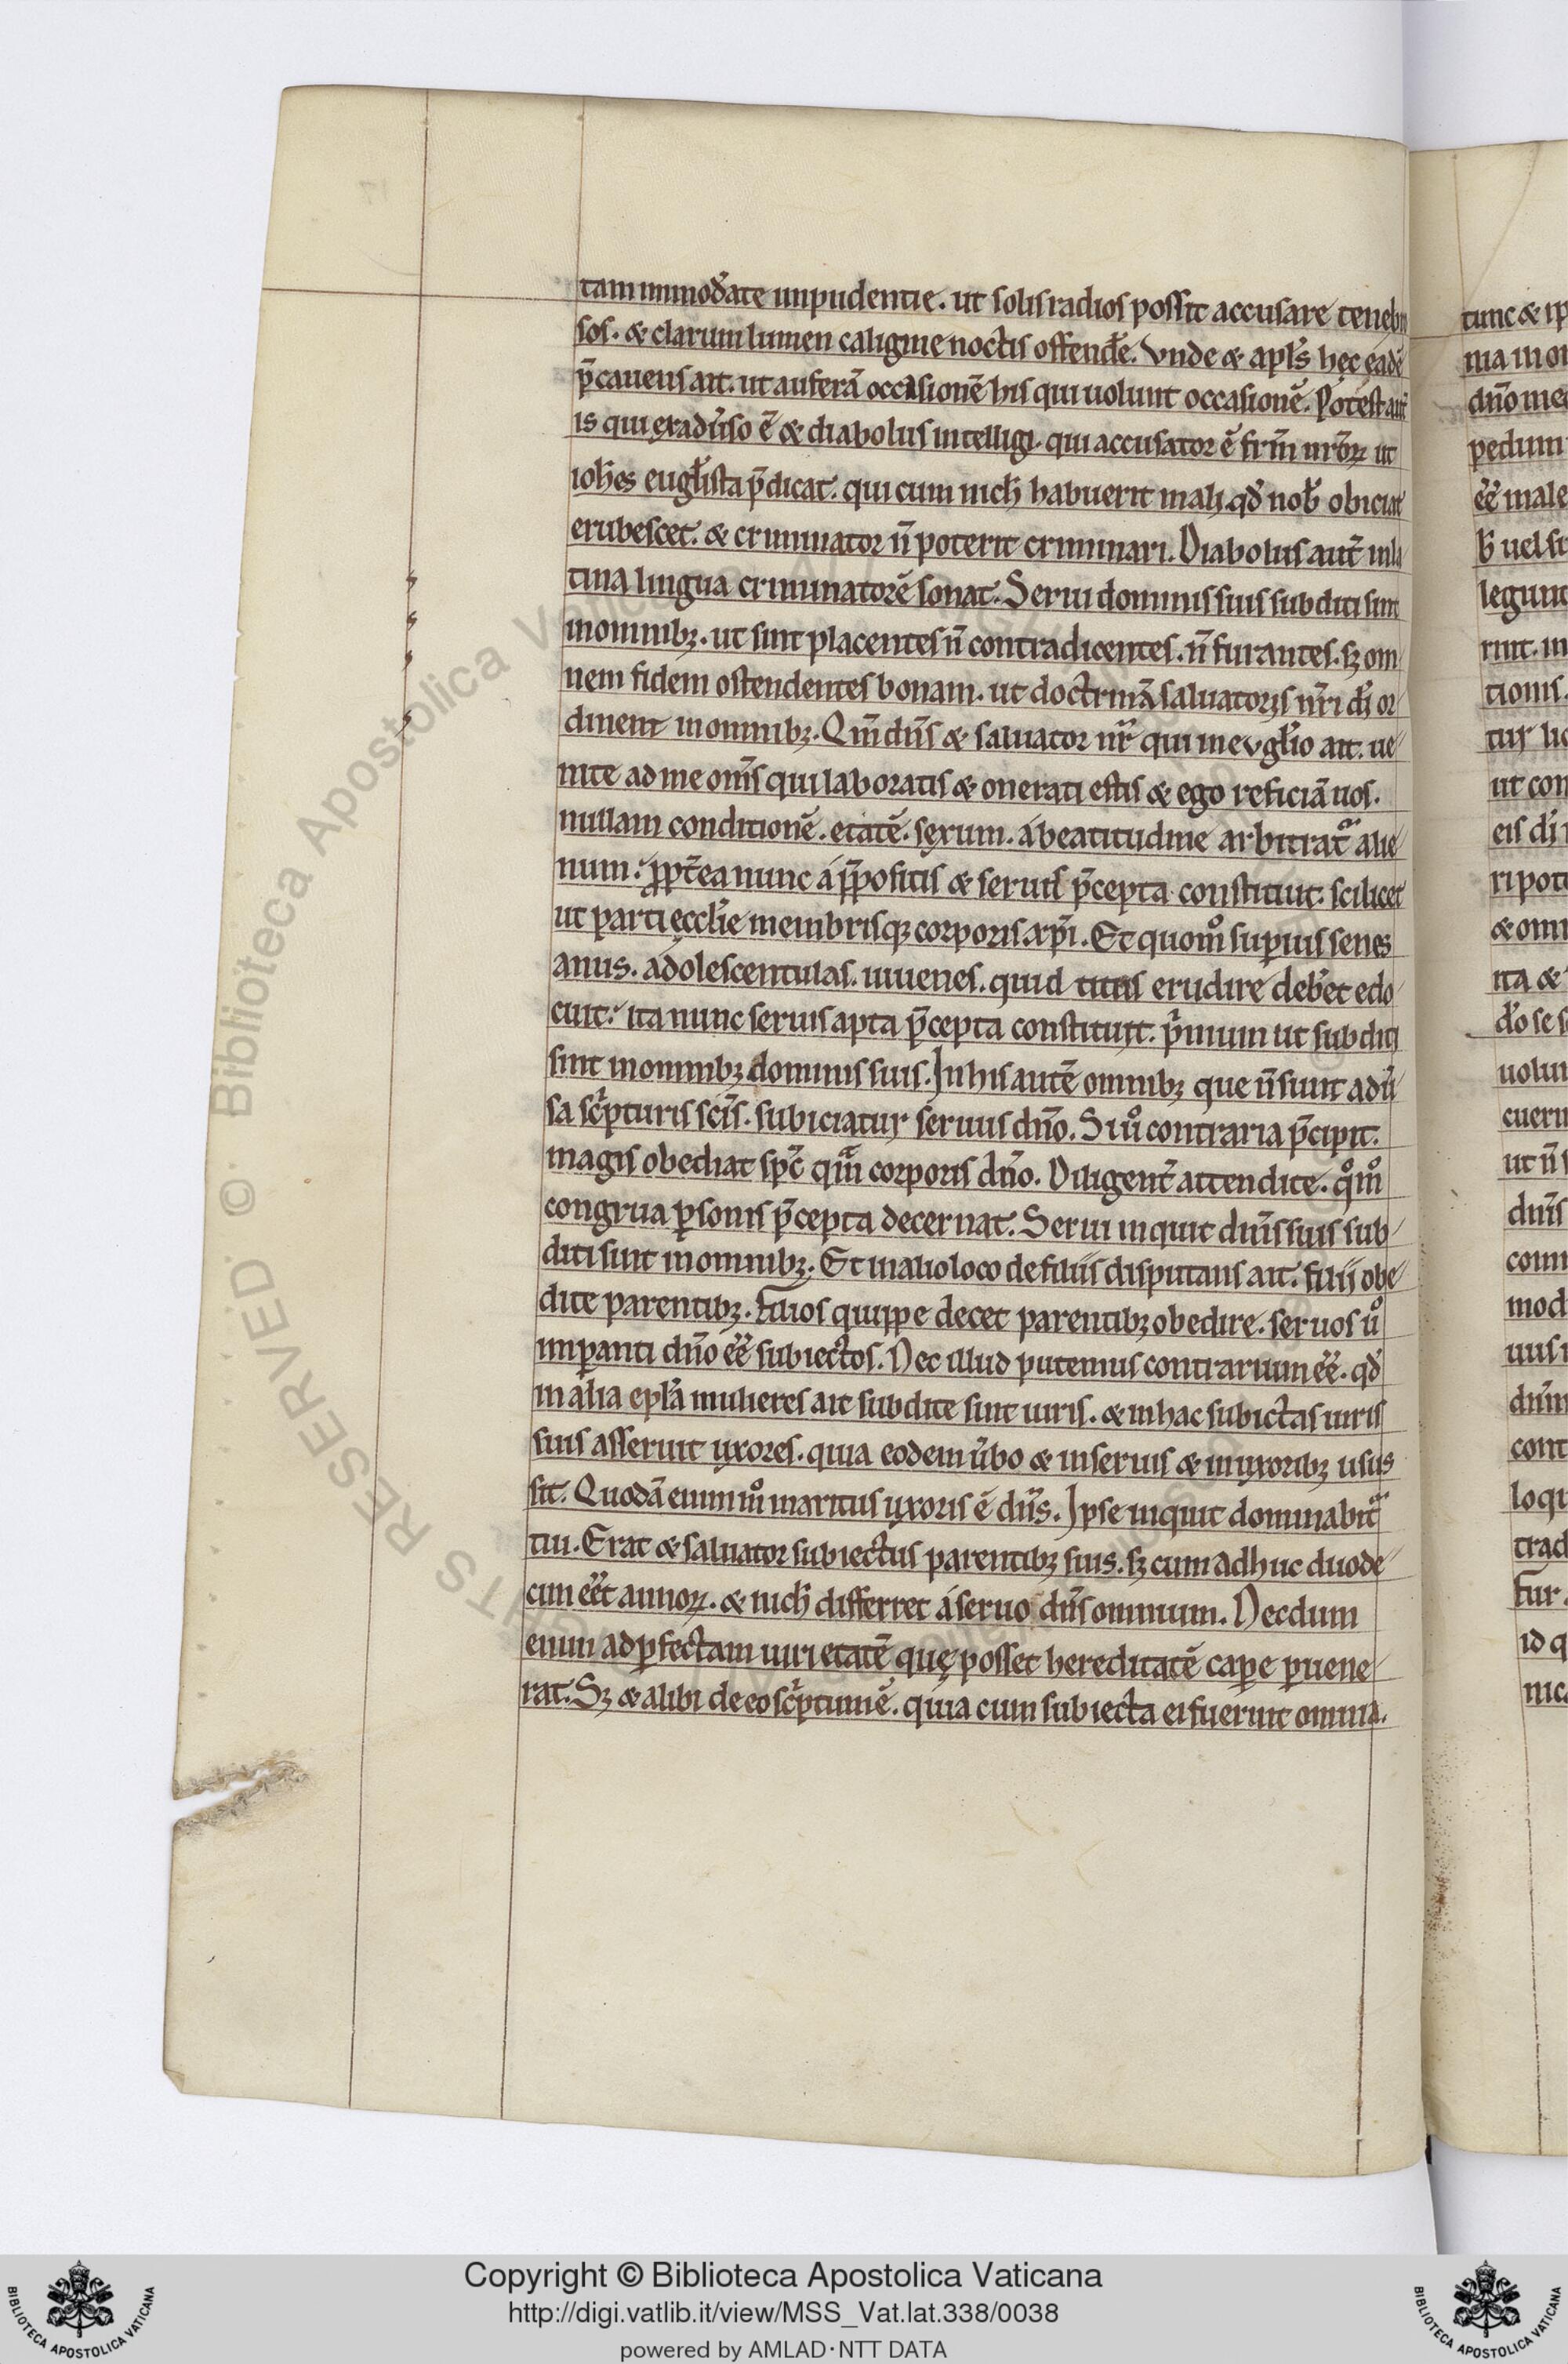 tam immod̓ate inpudentie. ut solis radios possit accusare tenebro
sos. & clarum lumen caligine noctis offend̓e. Vnde & apl̓s hęc eadē
p̄cauens ait. ut auferā occasionē his qui uolunt occasionē. Potest aut̄
is qui ex adu̓so ē & diabolus intelligi. qui accusator ē fr̄m nr̄oꝝ ut
ioh̄es eugl̓ista p̄dicat. qui cum nich̄ habuerit mali qd̓ nob̄ obiciat
erubescet. & criminator n̄ poterit criminari. Diabolus aut̄ in la
tina lingua criminatorē sonat. Serui dominis suis subditi sint
in omnibꝫ. ut sint placentes n̄ contradicentes. n̄ furantes. sꝫ om
nem fidem ostendentes bonam. ut doctrinā saluatoris nr̄i dī or
dinent in omnibꝫ. Qm̄ dn̄s & saluator nr̄ qui in evgl̓io ait. ue
nite ad me om̄s qui laboratis & onerati estis & ego reficiā uos.
nullam conditionē. etatē. sexum. a beatitudine arbitrat᷑ alie
num. ꝓpt̄ea nunc a p̄positis & seruis p̄cepta constituit. scilicet
ut parti ęccl̓ie membrisqꝫ corporis xp̄i. Et quom̊ sup̱ius senes
anus. adolescentulas. iuuenes. quid titus erudire deb̓et edo
cuit. ita nunc seruis apta p̄cepta constituit. p̓mum ut subditi
sint in omnibꝫ dominis suis. In his autē omnibꝫ que n̄ sunt adu̓
sa sc̓pturis sc̄is. subiciatur seruus dn̄o. Si ů contraria p̄cipit.
magis obediat sp̄c qm̄ corporis dn̄o. Diligent̄ attendite. q̊m̊
congrua ꝑsonis p̄cepta decernat. Serui inquit dn̄is suis sub
diti sint in omnibꝫ. Et in alio loco de filiis disputans ait. filii obe
dite parentibꝫ. Filios quippe decet parentibꝫ obedire. seruos ů
imꝑanti dn̄o ee̓ subiectos. Nec illud putemus contrarium ee̓. qd̓
in alia epl̓a mulieres ait subdite sint uiris. & in hac subictas uiris
suis asseruit uxores. quia eodem u̓bo & in seruis & in uxoribꝫ usus
sit. Quodā enim m̊ maritus uxoris ē dn̄s. Ipse inquit dominabit᷑
tui. Erat & saluator subiectus parentibꝫ suis. sꝫ cum adhuc duode
cim ee̓t annoꝝ. & nich̄ differret a seruo dn̄s omnium. Necdum
enim ad ꝑfectam uiri etatē quę posset hereditatē caꝑe ꝑuene
rat. Sꝫ & alibi de eo sc̓ptum ē. quia cum subiecta ei fuerint omnia.
tunc & ip
dn̄o me
pedum
ee̓ male
b̄ uel si
legunt
rint. in
tionis.
tur lic
ut con
eis dī
ri pote
& omn
ita &
d̓o se s
uolun
cueru
ut n̄ s
dn̄is
comm
mod
uus
cont
loqu
trad
fur
id q
nic
Copyright © Biblioteca Apostolica Vaticana
http://digi.vatlib.it/view/MSS_Vat.lat.338/0038
powered by AMLAD·NTT DATA
BIBLIOTECA APOSTOLICA VATICANA
BIBLIOTECA APOSTOLICA VATICANA